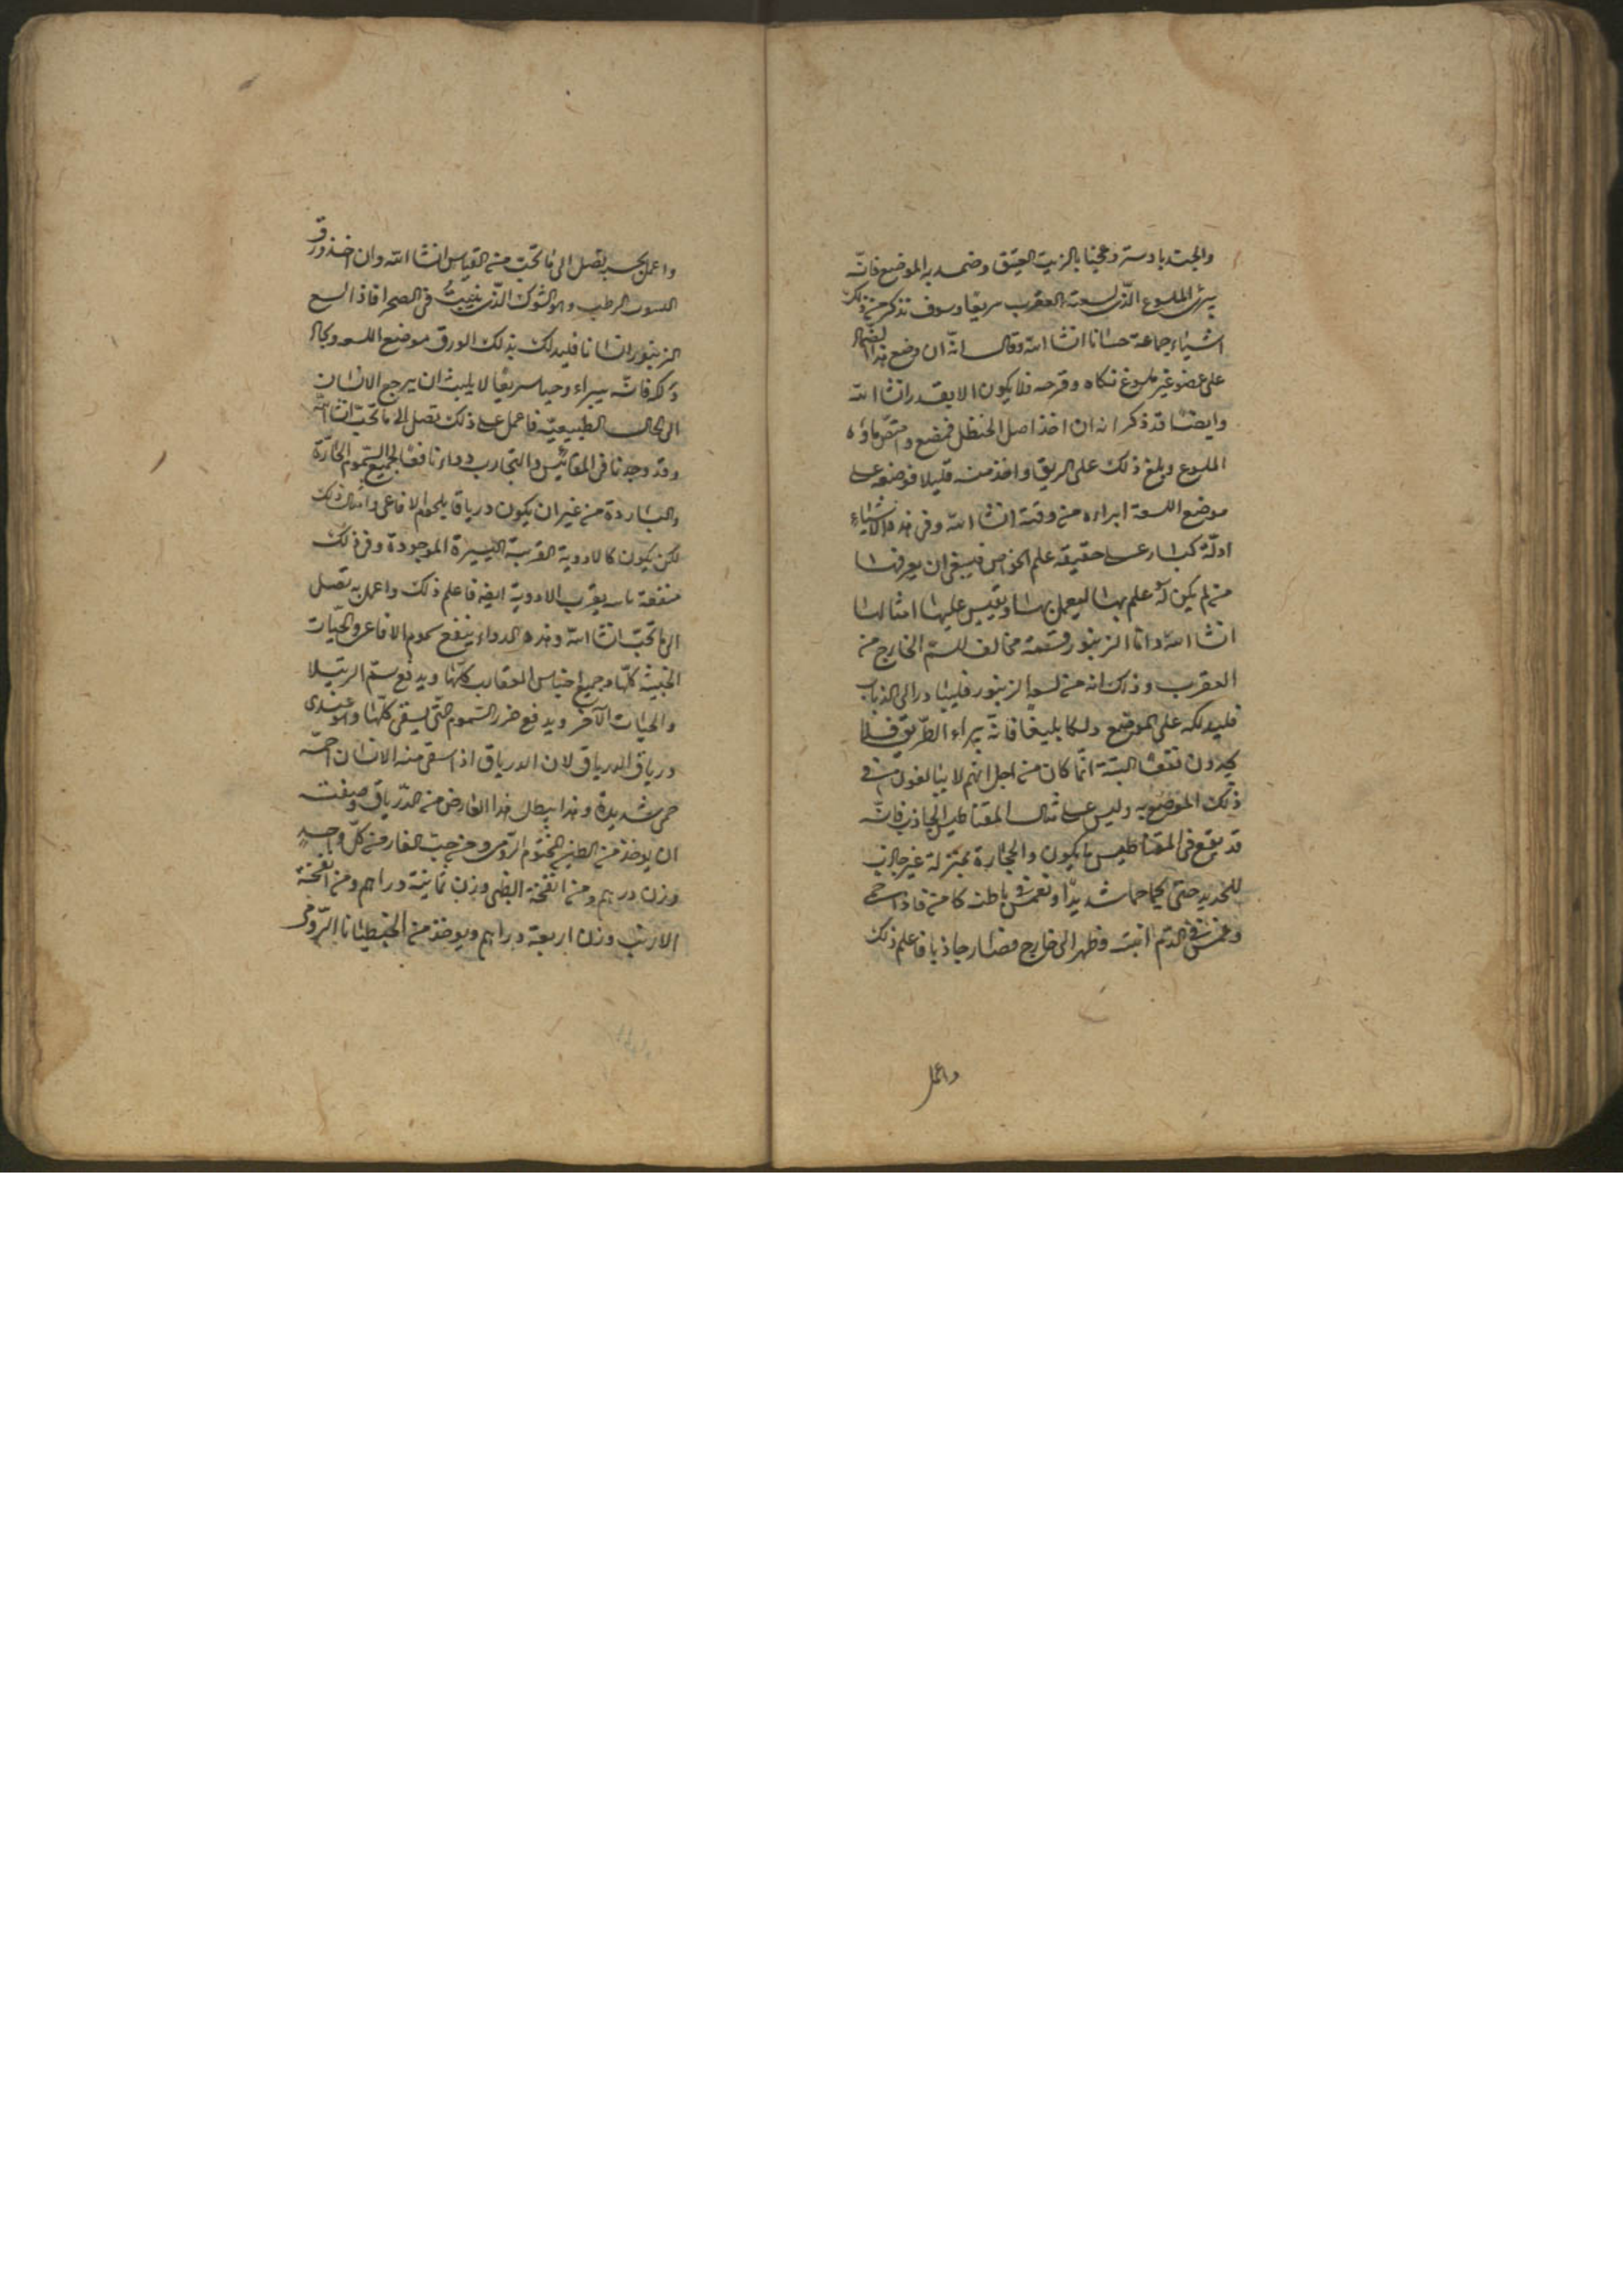 والجندبادستر وعجنا بالزيت العتيق وضمد به الموضع فانّه
يبرئ الملسوع الذى لسعته العقرب سريعا وسوف نذكر من ذلك
اشياء جماعة حسانا انشا الله وقال انّه ان وضع هذا الضماد
على عضو غير ملسوع نكاه وقرحه فلا يكون الا بقدر انشا الله
وايضا قد ذكر انه ان اخذ اصل الحنظل فمضغ وامتص ماؤه
الملسوع وبلغ ذلك على الريق واخذ منه قليلا فوضعه على
موضع اللسعة ابراءه من وقته انشا الله وفى هذه الاشياء
ادلّة كبار على حقيقة علم الخواص فينبغى ان يعرفها
من لم يكن له علم بها ليعمل بها ويقيس عليها امثالها
انشا الله واما الزنبور فسمه مخالف للسم الخارج من
العقرب وذلك انه من لسعه الزنبور فليبادر الى الذباب
فليدلكه على الموضع دلكا بليغا فانّه يبراء الطريق فلا
يجدون نفعا البتة انّما كان من اجل انهم لا يبالغون فى
ذلك الموضع به وليس على مثال المقناطيس الجاذب فانّه
قد يقع فى المقناطيس ما يكون والحجارة بمنزلة غير جاذب
للحديد حتى يحما حما شديدا او تغوش باطنه كامن فاذا حمى
وغمس فى الدم انبت وظهر الى خارج فصار جاذبا فاعلم ذلك
واعمل
واعمل بحسبه تصل الى ما تحب من القياس انشا الله وان اخذ ورق
الرطب وهو الشوك الذى ينبت فى الصحرا فاذا لسع
الزنبور انسانا فليدلك بذلك الورق موضع اللسعه
ذلك فانّه يبراء وحيا سريعا لا يلبث ان يرجع الانسان
الى الحال الطبيعيّة فاعمل على ذلك تصل الى ما تحب انشا الله
وقد وجدنا فى المقائيس والتجارب دواء نافعا لجميع السموم الحارّة
والباردة من غير ان يكون درياقا بلحوم الافاعى وامثال ذلك
لكن يكون كالادوية القريبة اليسيرة الموجودة وفى ذلك
منفعة بقرب الادوية ايضا فاعلم ذلك واعمل به تصل
الى ما تحب انشا الله وهذه الدواء ينفع سموم الافاعى والحيّات
الخبيثة كلّها وجميع اجناس العقارب كلّها ويدفع سمّ الرتيلا
والحيات الاخر ويدفع ضرر السموم التى يسقى كلّها وهو عندى
درياق الدرياق لان الدرياق اذا سقى منه الانسان احمّه
حمى شديدة وهذا يبطل هذا العارض من الدّرياق وصفته
ان يوخذ من الطين المختوم الرّومى ومن حب الغار من كلّ واحد
وزن درهم ومن انفحة الظبى وزن ثمانية دراهم ومن انفحة
الارنب وزن اربعة دراهم ويوخذ من الجنطيانا الرّومى